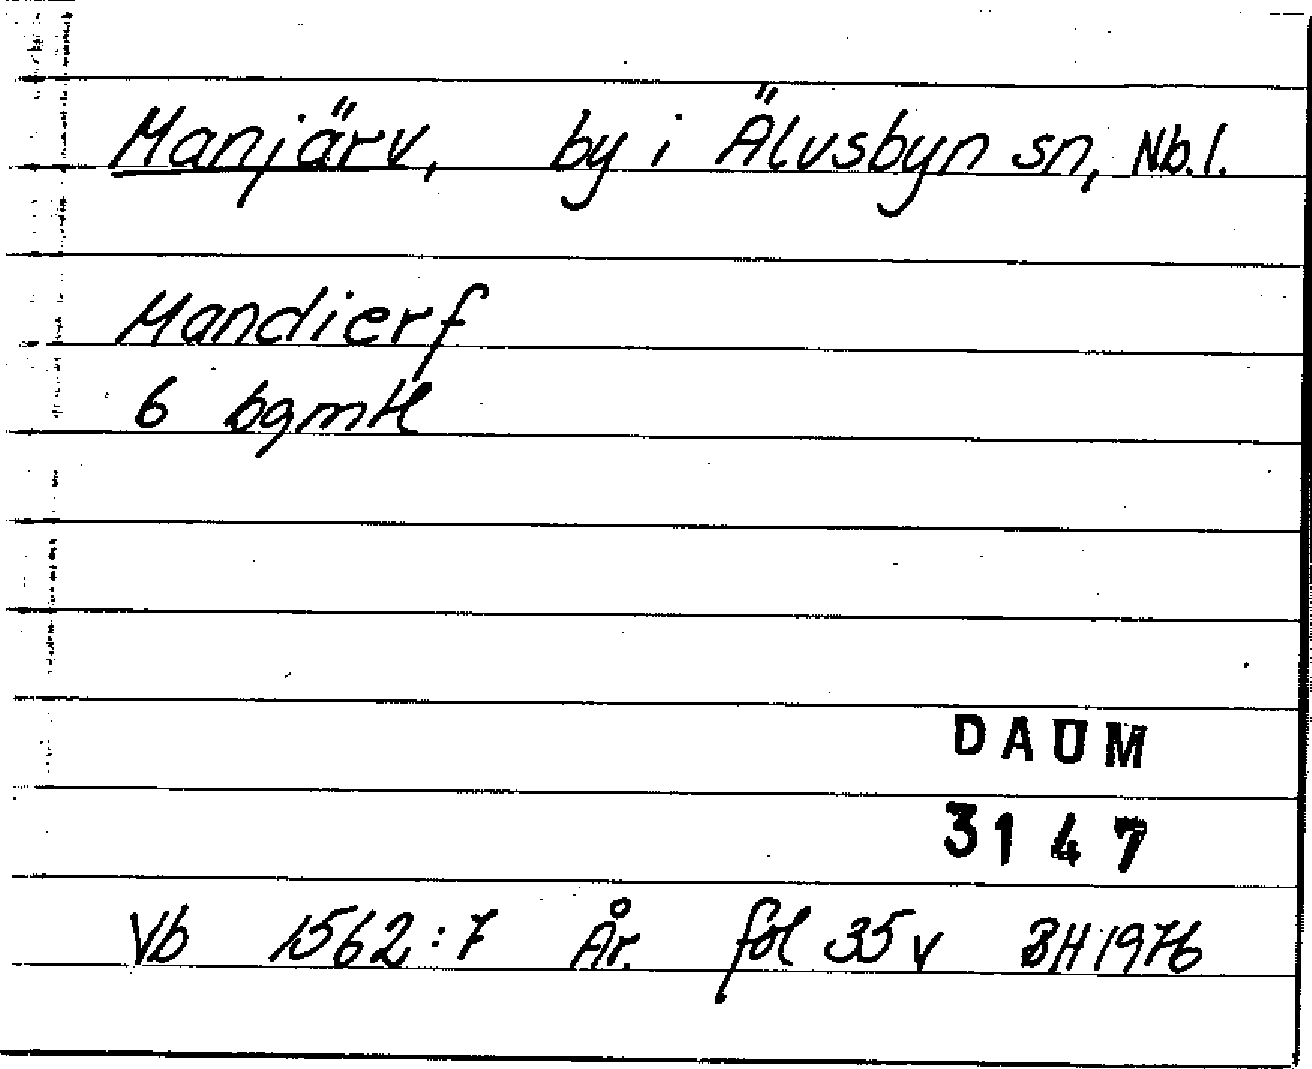 Manjärv, by i Älvsbyn sn, Nb.l.
Mandierf
6 bgmtl
DAUM
3147
Vb 1562:7 År. fol 35 v BH 1976